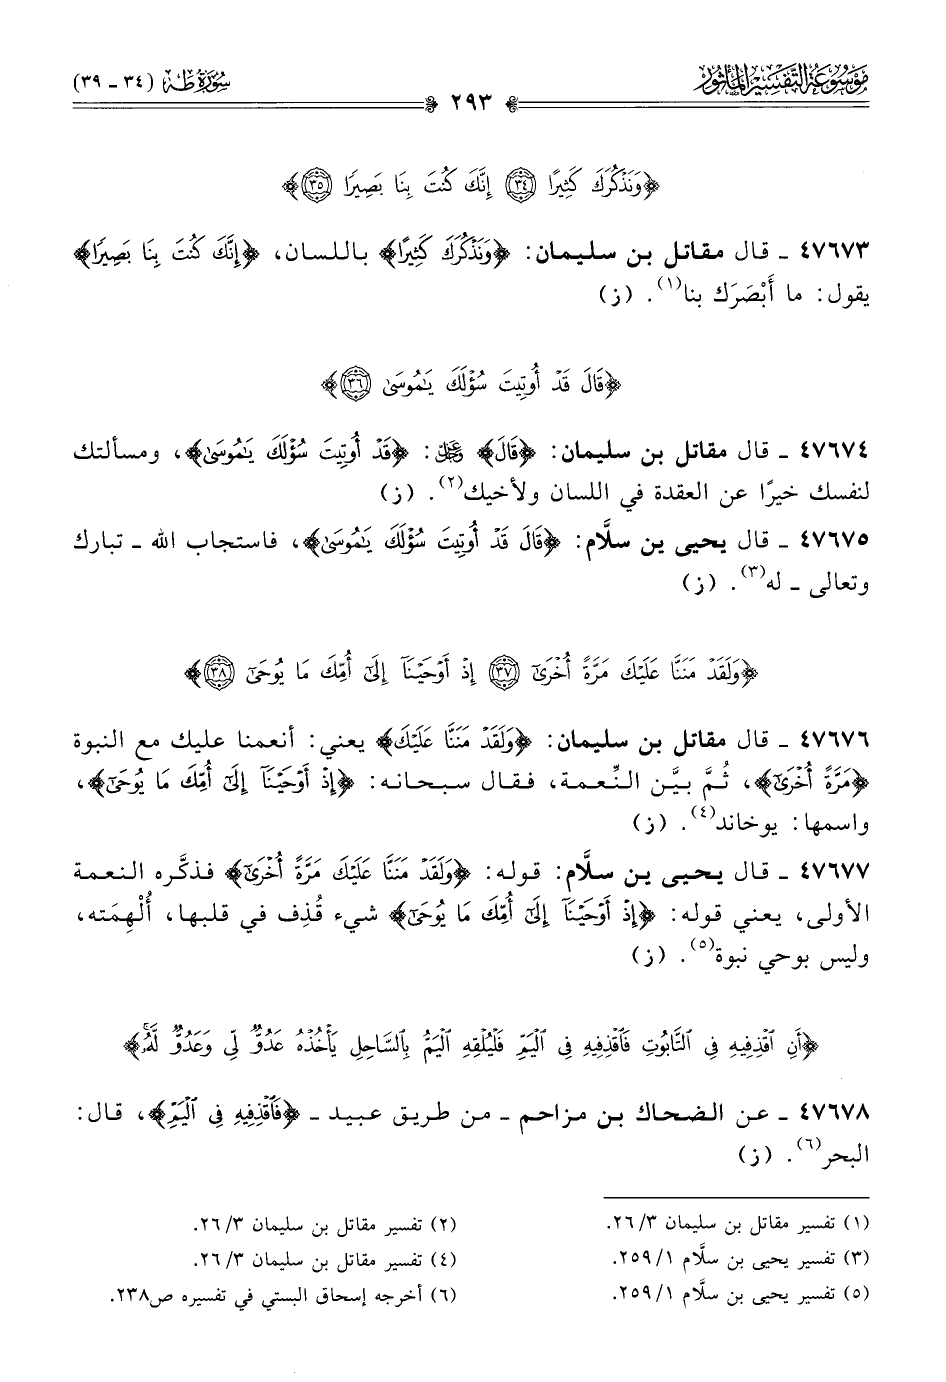 موسوعة التفسير المأثور
سورة طه (٣٤ - ٣٩)
٢٩٣
﴿وَنَذْكُرَكَ كَثِيرًا ٣٤ إِنَّكَ كُنتَ بِنَا بَصِيرًا ٣٥﴾
٤٧٦٧٣ - قال مقاتل بن سليمان: ﴿وَنَذْكُرَكَ كَثِيرًا﴾ باللسان، ﴿إِنَّكَ كُنتَ بِنَا بَصِيرًا﴾
يقول: ما أَبْصَرَك بنا(١). (ز)
﴿قَالَ قَدْ أُوتِيتَ سُؤْلَكَ يَـٰمُوسَىٰ ٣٦﴾
٤٧٦٧٤ - قال مقاتل بن سليمان: ﴿قَالَ﴾ ﷿: ﴿قَدْ أُوتِيتَ سُؤْلَكَ يَـٰمُوسَىٰ﴾، ومسألتك
لنفسك خيرًا عن العقدة في اللسان ولأخيك(٢). (ز)
٤٧٦٧٥ - قال يحيى بن سلَّام: ﴿قَالَ قَدْ أُوتِيتَ سُؤْلَكَ يَـٰمُوسَىٰ﴾، فاستجاب الله - تبارك
وتعالى - له(٣). (ز)
﴿وَلَقَدْ مَنَنَّا عَلَيْكَ مَرَّةً أُخْرَىٰٓ ٣٧ إِذْ أَوْحَيْنَآ إِلَىٰٓ أُمِّكَ مَا يُوحَىٰٓ ٣٨﴾
٤٧٦٧٦ - قال مقاتل بن سليمان: ﴿وَلَقَدْ مَنَنَّا عَلَيْكَ﴾ يعني: أنعمنا عليك مع النبوة
﴿مَرَّةً أُخْرَىٰٓ﴾، ثُمَّ بيَّن النِّعمة، فقال سبحانه: ﴿إِذْ أَوْحَيْنَآ إِلَىٰٓ أُمِّكَ مَا يُوحَىٰٓ﴾،
واسمها: يوخاند(٤). (ز)
٤٧٦٧٧ - قال يحيى بن سلَّام: قوله: ﴿وَلَقَدْ مَنَنَّا عَلَيْكَ مَرَّةً أُخْرَىٰٓ﴾ فذكَّره النعمة
الأولى، يعني قوله: ﴿إِذْ أَوْحَيْنَآ إِلَىٰٓ أُمِّكَ مَا يُوحَىٰٓ﴾ شيء قُذِف في قلبها، أُلْهِمَته،
وليس بوحي نبوة(٥). (ز)
﴿أَنِ ٱقْذِفِيهِ فِى ٱلتَّابُوتِ فَٱقْذِفِيهِ فِى ٱلْيَمِّ فَلْيُلْقِهِ ٱلْيَمُّ بِٱلسَّاحِلِ يَأْخُذْهُ عَدُوٌّ لِّى وَعَدُوٌّ لَّهُۥ﴾
٤٧٦٧٨ - عن الضحاك بن مزاحم - من طريق عبيد - ﴿فَٱقْذِفِيهِ فِى ٱلْيَمِّ﴾، قال:
البحر(٦). (ز)
(١) تفسير مقاتل بن سليمان ٣/٢٦.
(٢) تفسير مقاتل بن سليمان ٣/٢٦.
(٣) تفسير يحيى بن سلَّام ١/٢٥٩.
(٤) تفسير مقاتل بن سليمان ٣/٢٦.
(٥) تفسير يحيى بن سلَّام ١/٢٥٩.
(٦) أخرجه إسحاق البستي في تفسيره ص٢٣٨.